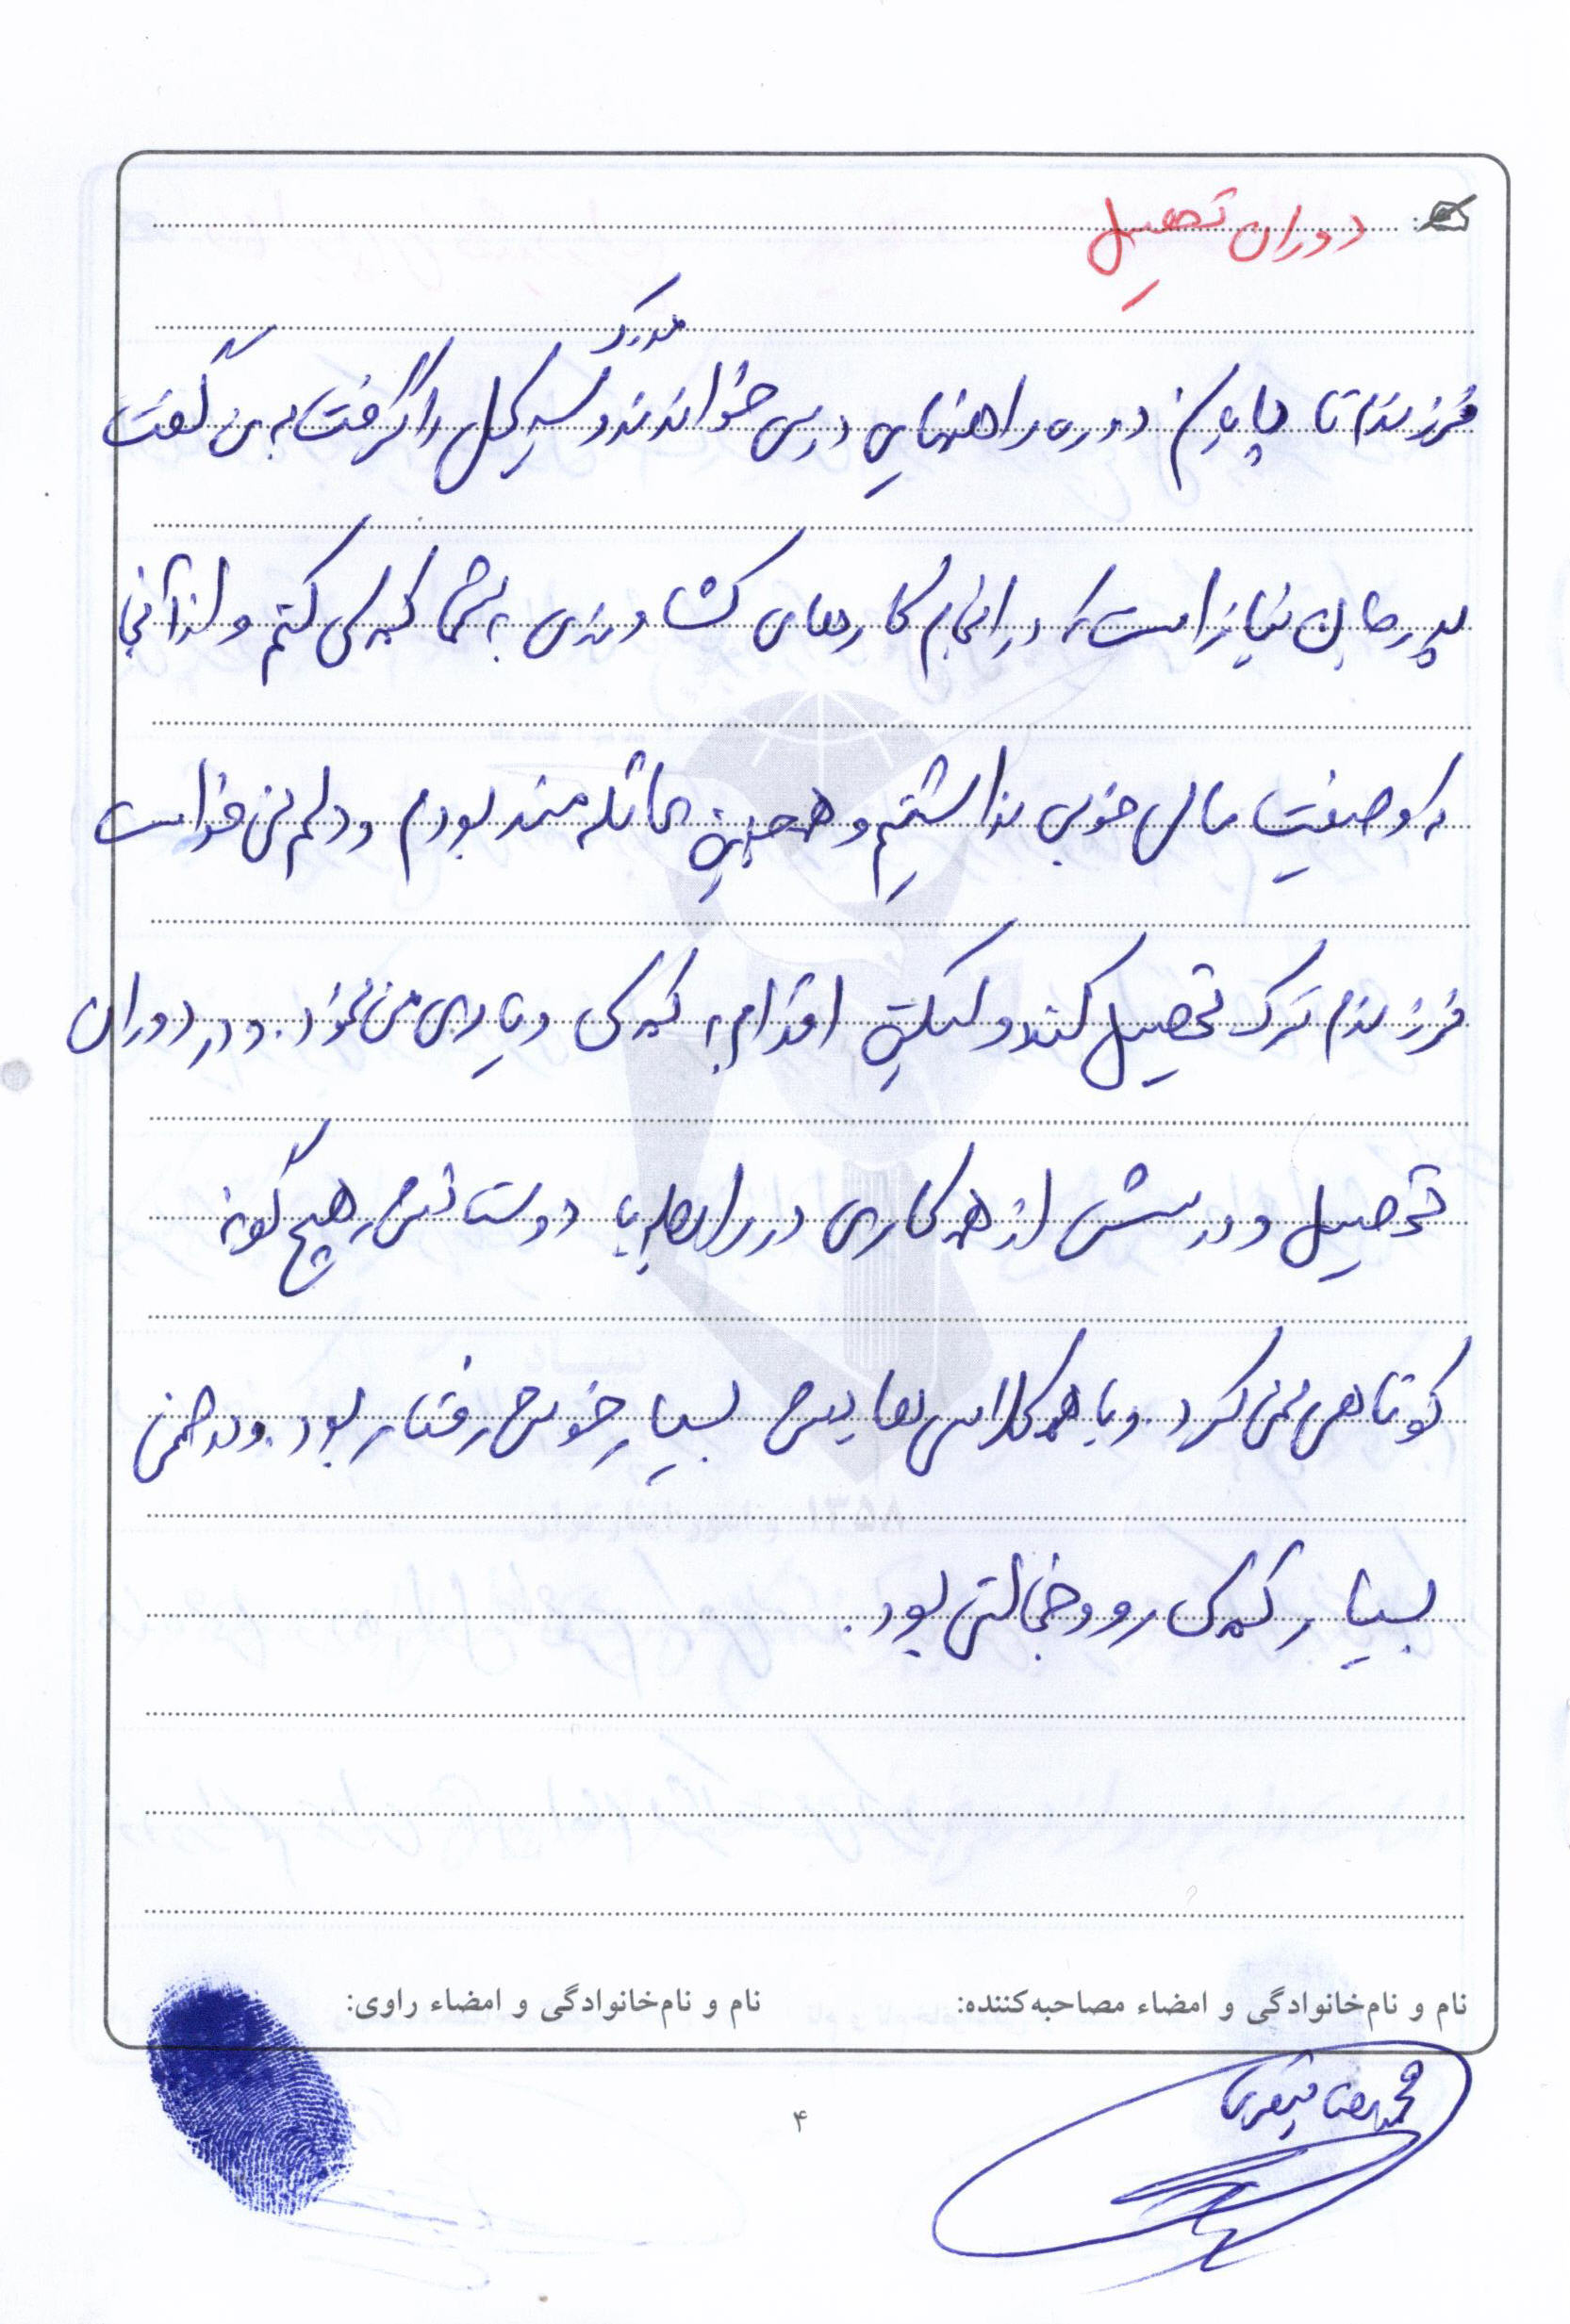 دوران تحصیل
مدرک
فرزندم تا پایان دوره راهنمایی درس خواندند و سیکل را گرفت به من گفت
پدرجان نیاز است که در انجام کارهای کشاورزی به شما کمک کنم و از آنجا
که وضعیت مالی خوبی نداشتیم و همچنین عائله مند بودم و دلم نمی خواست
فرزندم ترک تحصیل کند ولیکن اقدام به کمک و یاری من نمود. و در دوران
تحصیل و درسش از همکاری در رابطه با دوستانش هیچ گونه
کوتاهی نمی کرد. و با همکلاسی هایش بسیار خوش رفتار بود. و در ضمن
بسیار کمک رو و خجالتی بود.
نام و نام‌خانوادگی و امضاء مصاحبه‌کننده: نام و نام‌خانوادگی و امضاء راوی:
محمدرضا
۴
۱۳۵۸